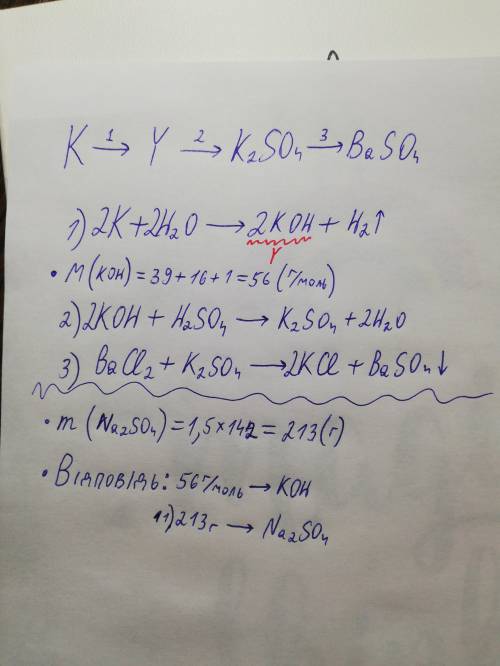 K 1→ Y 2→ K₂SO₄ 3→ BaSO₄
1) 2K+2H₂O → 2KOH + H₂↑
Y
• M(KOH) = 39+16+1=56 (г/моль)
2) 2KOH + H₂SO₄ → K₂SO₄ + 2H₂O
3) BaCl₂ + K₂SO₄ → 2KCl + BaSO₄↓
• m (Na₂SO₄) = 1,5×142 = 213(г)
• Відповідь: 56 г/моль → KOH
11) 213г → Na₂SO₄